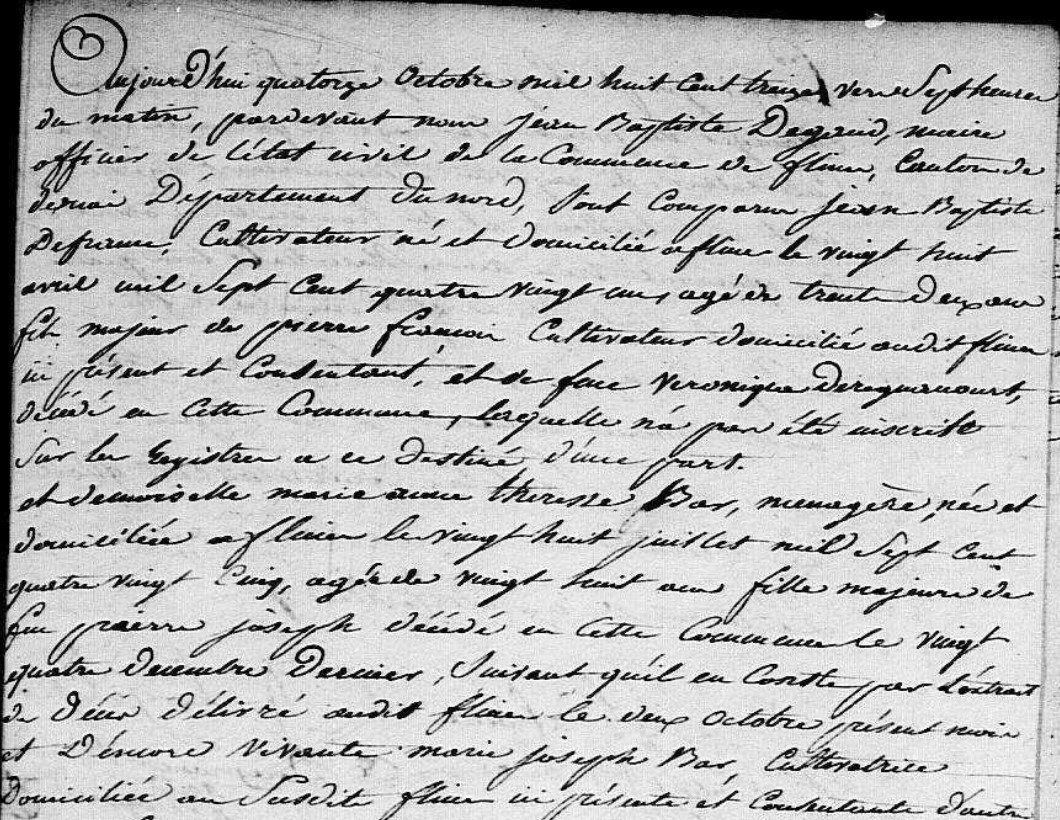 Aujourd'hui quatorze Octobre mil huit Cent treize vers Sept heures
du matin, pardevant nous jean Baptiste Degand, maire
officier de l'état civil de la Commune de flines, Canton de
Département du nord, Sont Comparus jean Baptiste
Cultivateur né et Domicilié a flines le vingt huit
avril mil Sept Cent quatre vingt un, agé de trente Deux ans
fils majeur de pierre francois Cultivateur Domicilié audit flines
ici présent et Consentant, et de feue Veronique Deregnaucourt,
décédé en Cette Commune, laquelle n'a pas été inscrite
Sur les Registres a ce Destiné, d'une part.
et demoiselle marie anne theresse Bar, menagère, née et
domiciliée a flines le vingt huit juillet mil Sept Cent
quatre vingt Cinq, agée de vingt huit ans fille majeure de
feu pierre joseph décédé en Cette Commune le vingt
quatre decembre Dernier, Suivant qu'il en Conste par L'extrait
de Décès délivré audit flines le deux octobre présent mois
et D'éncore Vivante marie joseph Bar, Cultivatrice
Domiciliée au Susdite flines ici présente et Consentante D'autre